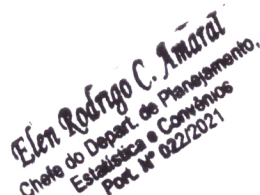 Elen Rodrigo C. Amaral
Chefe do Depart. de Planejamento,
Estatística e Convênios
Port. Nº 022/2021